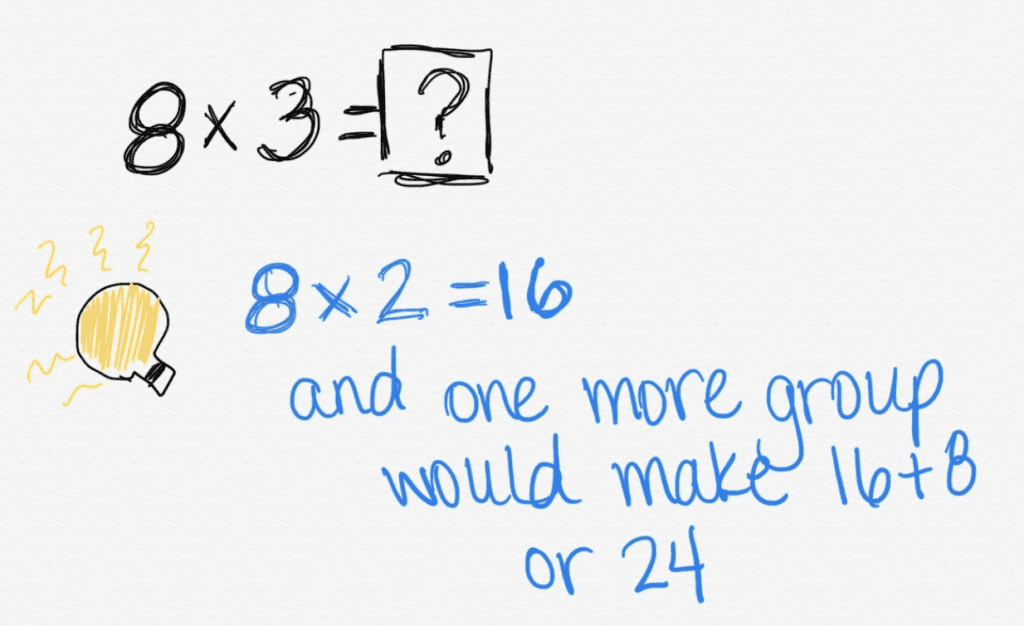 8 × 3 = ?
8 × 2 = 16
and one more group
would make 16+8
or 24